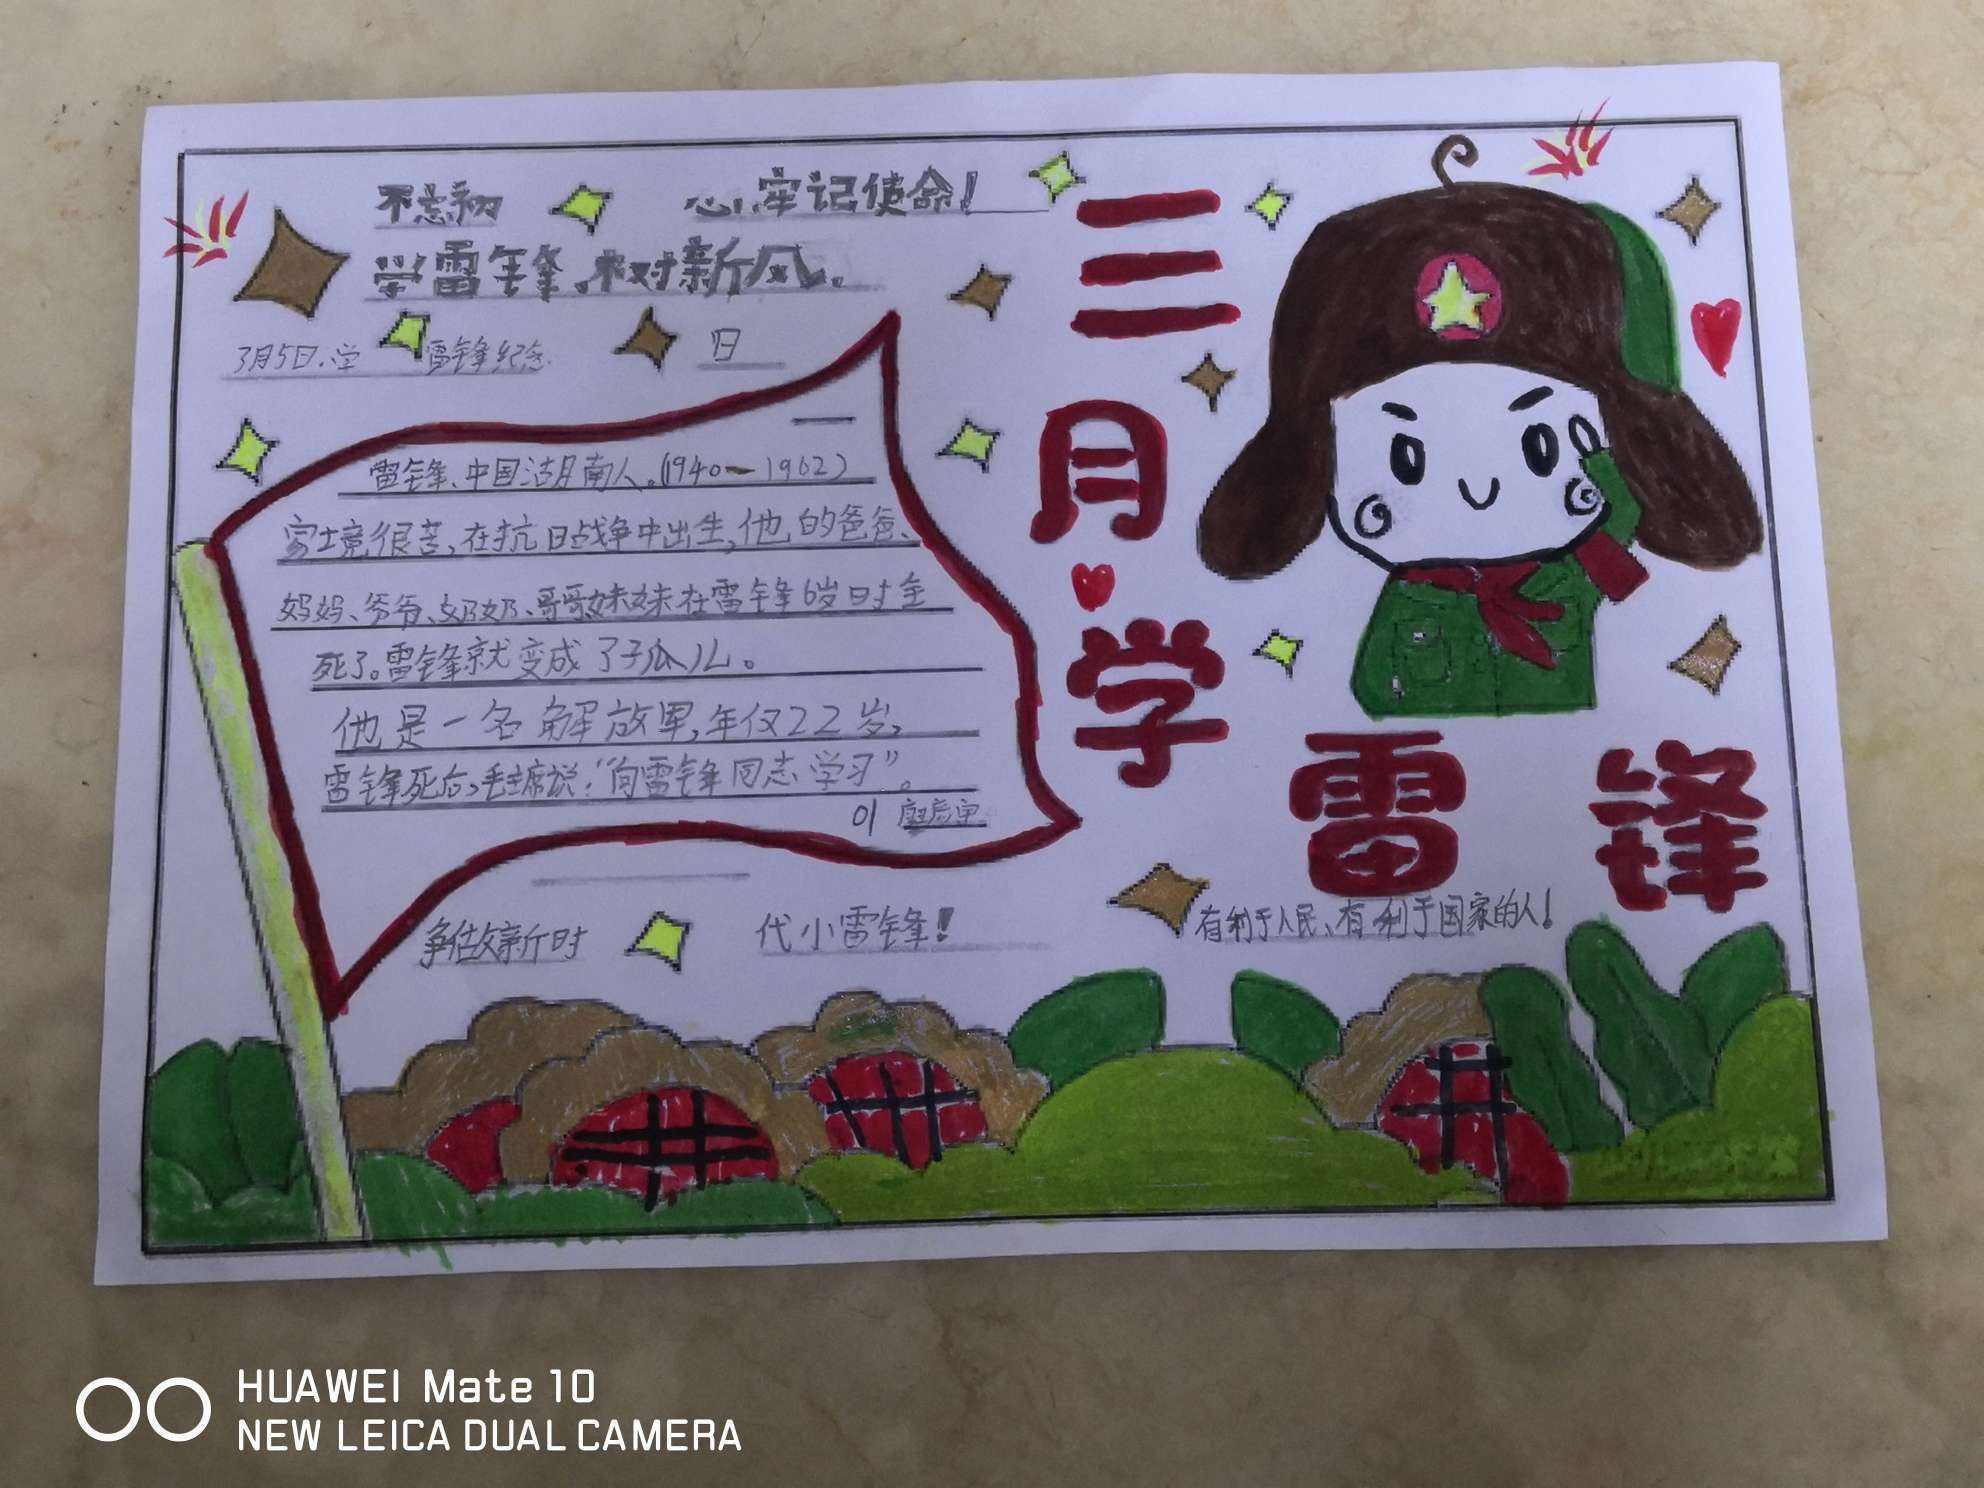 不忘初心,牢记使命!
学雷锋,树新风。
3月5日,学雷锋纪念日
三月学雷锋
雷锋、中国湖南人。(1940—1962)
家境很苦,在抗日战争中出生,他的爸爸、
妈妈、爷爷、奶奶、哥哥妹妹在雷锋6岁时全
死了。雷锋就变成了孤儿。
他是一名解放军,年仅22岁,
雷锋死后,毛主席说:“向雷锋同志学习”。
01
争做新时代小雷锋!
有利于人民、有利于国家的人!
HUAWEI Mate 10
NEW LEICA DUAL CAMERA